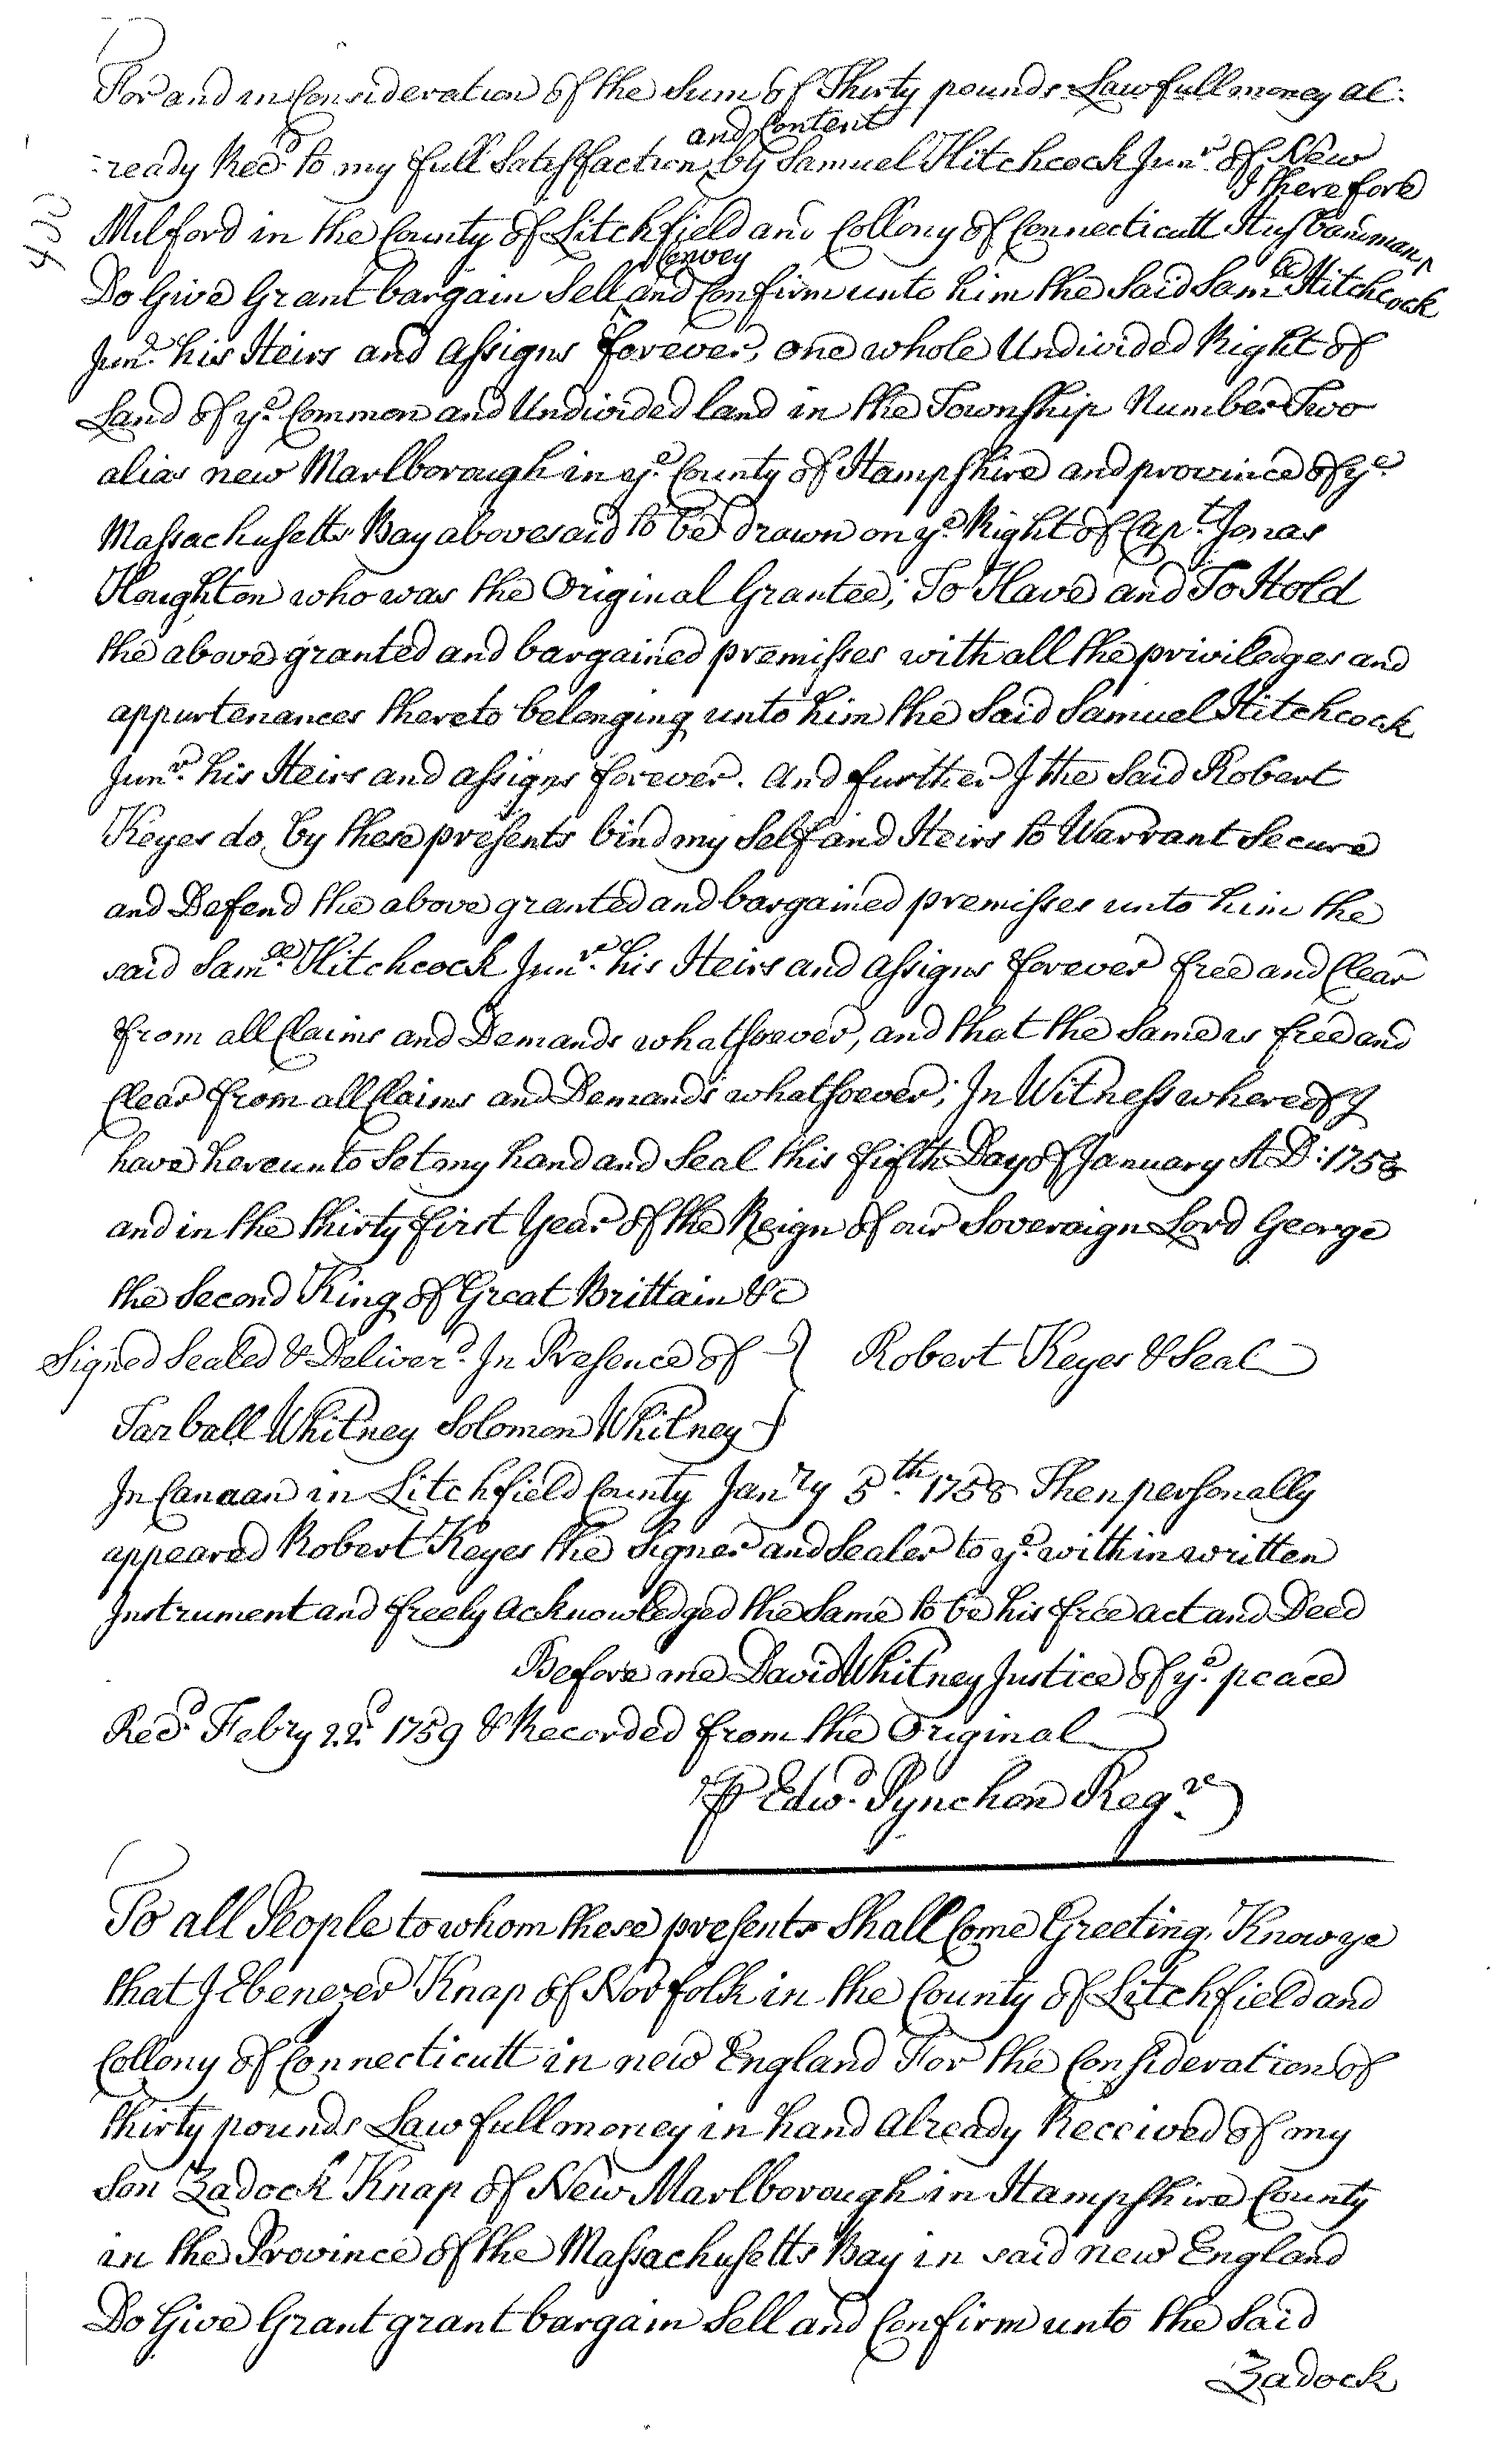 For and in Consideration of the Sum of Thirty pounds Lawfull money al:
and Content
:ready Recd. to my full Satisfaction ^ by Samuel Hitchcock Junr. of New
I therefore
Milford in the County of Litchfield and Collony of Connecticutt Husbandman ^
Convey
Do Give Grant bargain Sell and Confirm unto him the Said Samll. Hitchcock
Junr. his Heirs and assigns forever, one whole Undivided Right of
Land of ye. Common and Undivided land in the Township Number Two
alias new Marlborough in ye. County of Hampshire and province of ye.
Massachusetts Bay abovesaid to be drawn on ye. Right of Capt. Jonas
Houghton who was the Original Grantee; To Have and To Hold
the above granted and bargained premisses with all the priviledges and
appurtenances thereto belonging unto him the Said Samuel Hitchcock
Junr. his Heirs and assigns forever. And further I the Said Robert
Keyes do by these presents bind my Self and Heirs to Warrant Secure
and Defend the above granted and bargained premisses unto him the
said Samll. Hitchcock Junr. his Heirs and assigns forever free and Clear
from all Claims and Demands whatsoever, and that the Same is free and
Clear from all Claims and Demands whatsoever; In Witness whereof I
have hereunto Set my hand and Seal this fifth Day of January A D: 1758
and in the thirty first Year of the Reign of our Soveraign Lord George
the Second King of Great Brittain &c
Signed Sealed & Deliverd. In Presence of } Robert Keyes & Seal
Tarball Whitney Solomon Whitney }
In Canaan in Litchfield County Janry 5th. 1758 Then personally
appeared Robert Keyes the Signer and Sealer to ye. within written
Instrument and freely Acknowledged the Same to be his free act and Deed
Before me David Whitney Justice of ye. peace
Recd. Febry 22d. 1759 & Recorded from the Original
P Edwd. Pynchon Regr.
To all People to whom these presents Shall Come Greeting, Know ye
that I Ebenezer Knap of Norfolk in the County of Litchfield and
Collony of Connecticutt in new England For the Consideration of
thirty pounds Lawfull money in hand Already Received of my
Son Zadock Knap of New Marlborough in Hampshire County
in the Province of the Massachusetts Bay in said new England
Do Give Grant grant bargain Sell and Confirm unto the Said
Zadock